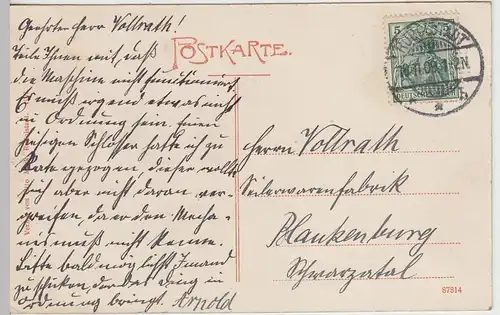 Geehrter Herr Vollrath!
Teile Ihnen mit, daß
die Maschine nicht funktioniert.
Es muß irgend etwas nicht
in Ordnung sein. Einen
hiesigen Schlosser hatte ich zu
Rate gezogen, dieser wollte
sich aber nicht daran ver-
greifen, da er den Mecha-
nismuß nicht kenne.
Bitte baldmöglichst Jmand
zu schicken, der das Ding in
Ordnung bringt. Arnold
POSTKARTE.
5
DEUTSCHES
Herrn Vollrath
Seilerwarenfabrik
Blankenburg
Schwarzatal
87814